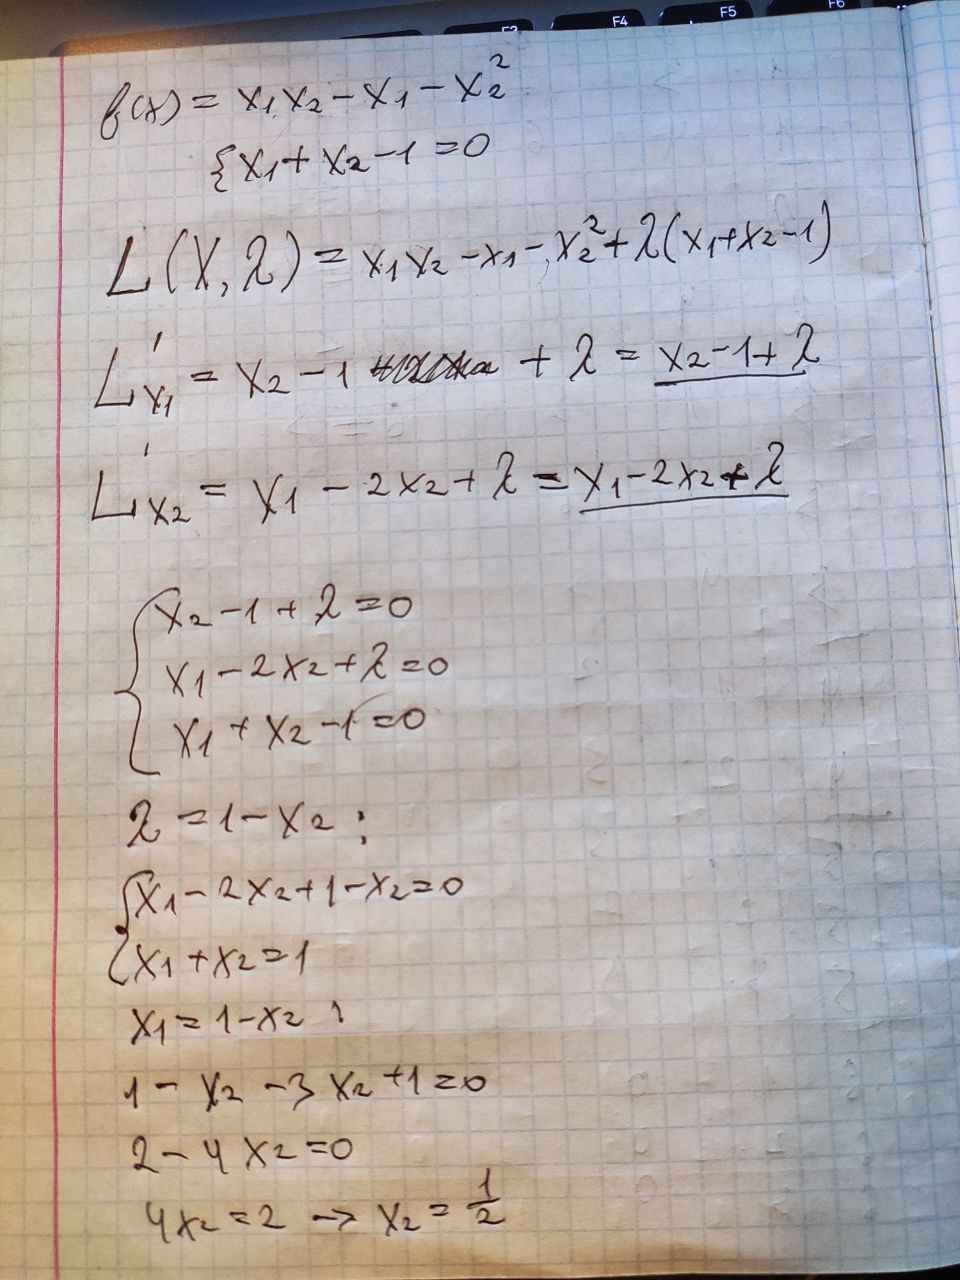 F3 F4 F5 F6
f(x) = x₁x₂ - x₁ - x₂²
{x₁ + x₂ - 1 = 0
L(X, λ) = x₁x₂ - x₁ - x₂² + λ(x₁+x₂-1)
L'x₁ = x₂ - 1 + λ = x₂ - 1 + λ
L'x₂ = x₁ - 2x₂ + λ = x₁ - 2x₂ + λ
{x₂ - 1 + λ = 0
x₁ - 2x₂ + λ = 0
x₁ + x₂ - 1 = 0
λ = 1 - x₂ ;
{x₁ - 2x₂ + 1 - x₂ = 0
x₁ + x₂ = 1
x₁ = 1 - x₂ ;
1 - x₂ - 3x₂ + 1 = 0
2 - 4x₂ = 0
4x₂ = 2 → x₂ = 1/2